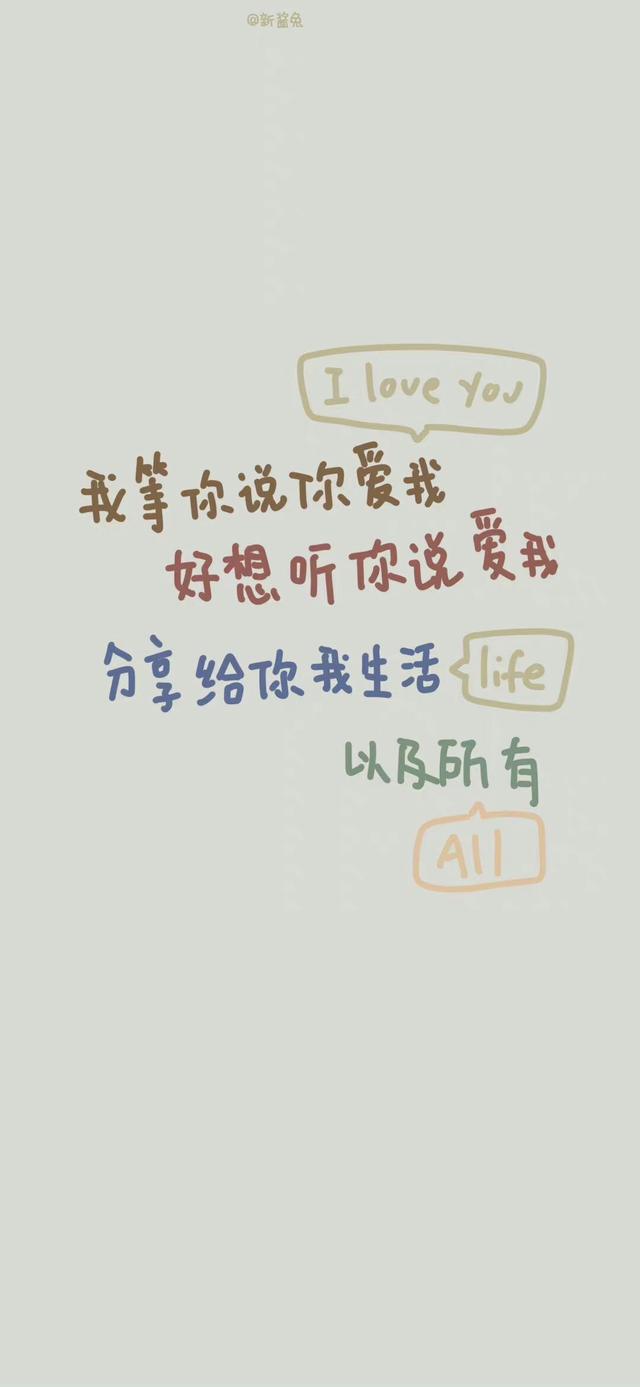 @新酱兔
I love you
我等你说你爱我
好想听你说爱我
分享给你我生活 life
以及所有
All